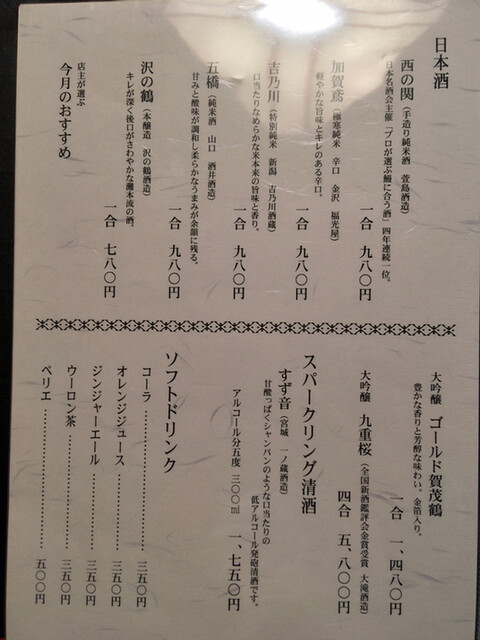 日本酒
西の関(手造り純米酒 萱島酒造)
「日本名酒会主催「プロが選ぶ鰻に合う酒」四年連続一位。
一合 九八〇円
加賀鳶(極寒純米 辛口 金沢 福光屋)
軽やかな旨味とキレのある辛口。
一合 九八〇円
吉乃川(特別純米 新潟 吉乃川酒蔵)
口当たりなめらかな米本来の旨味と香り。
一合 九八〇円
五橋(純米酒 山口 酒井酒造)
甘みと酸味が調和し柔らかなうまみが余韻に残る。
一合 九八〇円
沢の鶴(本醸造 沢の鶴酒造)
キレが深く後口がさわやかな灘本流の酒。
一合 七八〇円
店主が選ぶ
今月のおすすめ
大吟醸 ゴールド賀茂鶴
豊かな香りと芳醇な味わい。金箔入り。
一合 一、四八〇円
大吟醸 九重桜(全国新酒鑑評会金賞受賞 大滝酒造)
四合 五、八〇〇円
スパークリング清酒
すず音(宮城 一ノ蔵酒造)
甘酸っぱくシャンパンのような口当たりの
低アルコール発砲清酒です。
アルコール分五度 三〇〇ml 一、七五〇円
ソフトドリンク
コーラ………………三五〇円
オレンジジュース………三五〇円
ジンジャーエール………三五〇円
ウーロン茶……………三五〇円
ペリエ………………五〇〇円